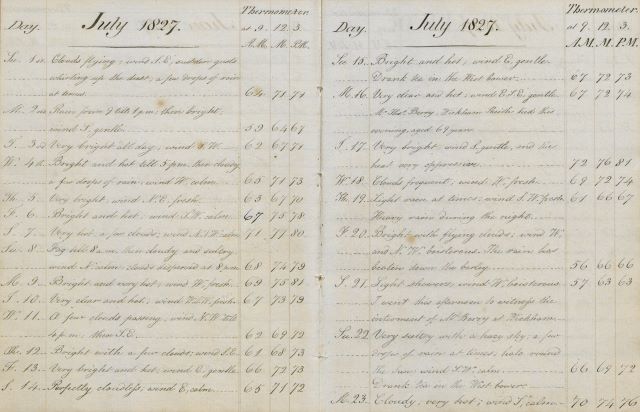 Thermometer
Day. July 1827. at 9. 12. 3.
A.M. M. P.M.
Su. 1st Clouds flying; wind S.E. sudden gusts
whirling up the dust, a few drops of rain
at times 64 71 71
M. 2nd Rain from 9 till 1 p.m; then bright,
wind S. gentle. 59 64 67
T. 3rd Very bright all day; wind W. 62 67 71
W. 4th Bright and hot till 5 p.m. then cloudy
a few drops of rain, wind W. calm. 65 71 73
Th. 5. Very bright, wind N.E. fresh. 63 67 70
F. 6. Bright and hot, wind calm. 67 75 78
S. 7. Very hot, a few clouds; wind calm 71 77 80
Su. 8. Fog till 8 a.m. then cloudy and sultry
wind calm; clouds dispersed at 8 p.m. 68 74 79
M. 9. Bright and very hot; wind W. fresh. 69 75 81
T. 10. Very clear and hot; wind fresh. 67 73 79
W. 11. A few clouds passing, wind N.W. till
4 p.m; then S.E. 62 69 72
Th. 12. Bright with a few clouds; wind S.E. 61 68 73
F. 13. Very bright and hot, wind E. gentle 66 72 73
S. 14. Perfectly cloudless, wind E, calm. 65 71 72
Thermometer
Day. July 1827. at 9. 12. 3.
A.M. M. P.M.
Su. 15. Bright and hot, wind E. gentle.
Drank tea in the West bower. 67 72 73
M. 16. Very clear and hot; wind E.S.E. gentle 67 72 74
Berry, Wickham died this
evening, aged 69 years.
T. 17. Very bright wind S. gentle, and the
heat very oppressive. 72 76 81
W. 18. Clouds frequent, wind W. fresh. 69 72 74
Th. 19. Light rain at times; wind S.W. fresh 61 66 67
Heavy rain during the night.
F. 20. Bright with flying clouds; wind W.
and N.W. boisterous. The rain has
beaten down the barley. 56 66 66
S. 21. Light showers; wind W. boisterous 57 63 63
I went this afternoon to witness the
interment of Mr Berry at Wickham.
Su. 22. Very sultry with a hazy sky: a few
drops of rain at times, halo round
the Sun wind S.W. calm. 66 69 72
Drank tea in the West bower.
M. 23. Cloudy, very hot; wind calm. 70 74 76